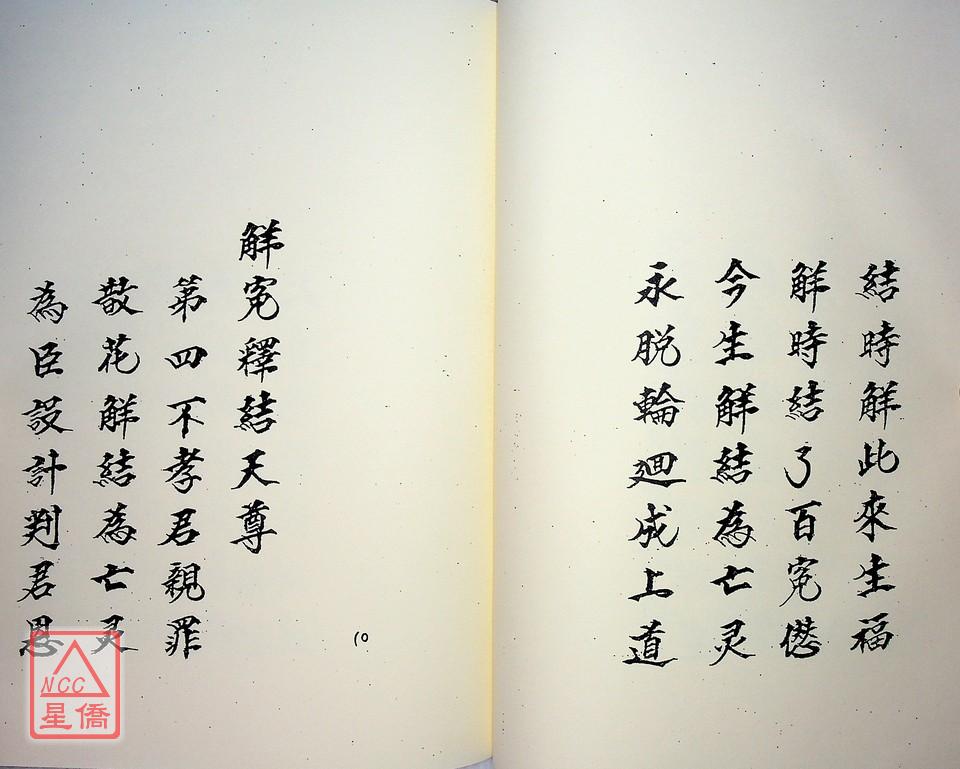 結時解此來生福
解時結了百寃愆
今生解結為亡灵
永脱輪廻成上道
解寃釋結天尊
第四不孝君親罪
散花解結為亡灵
為臣設計判君恩
10
NCC
星僑